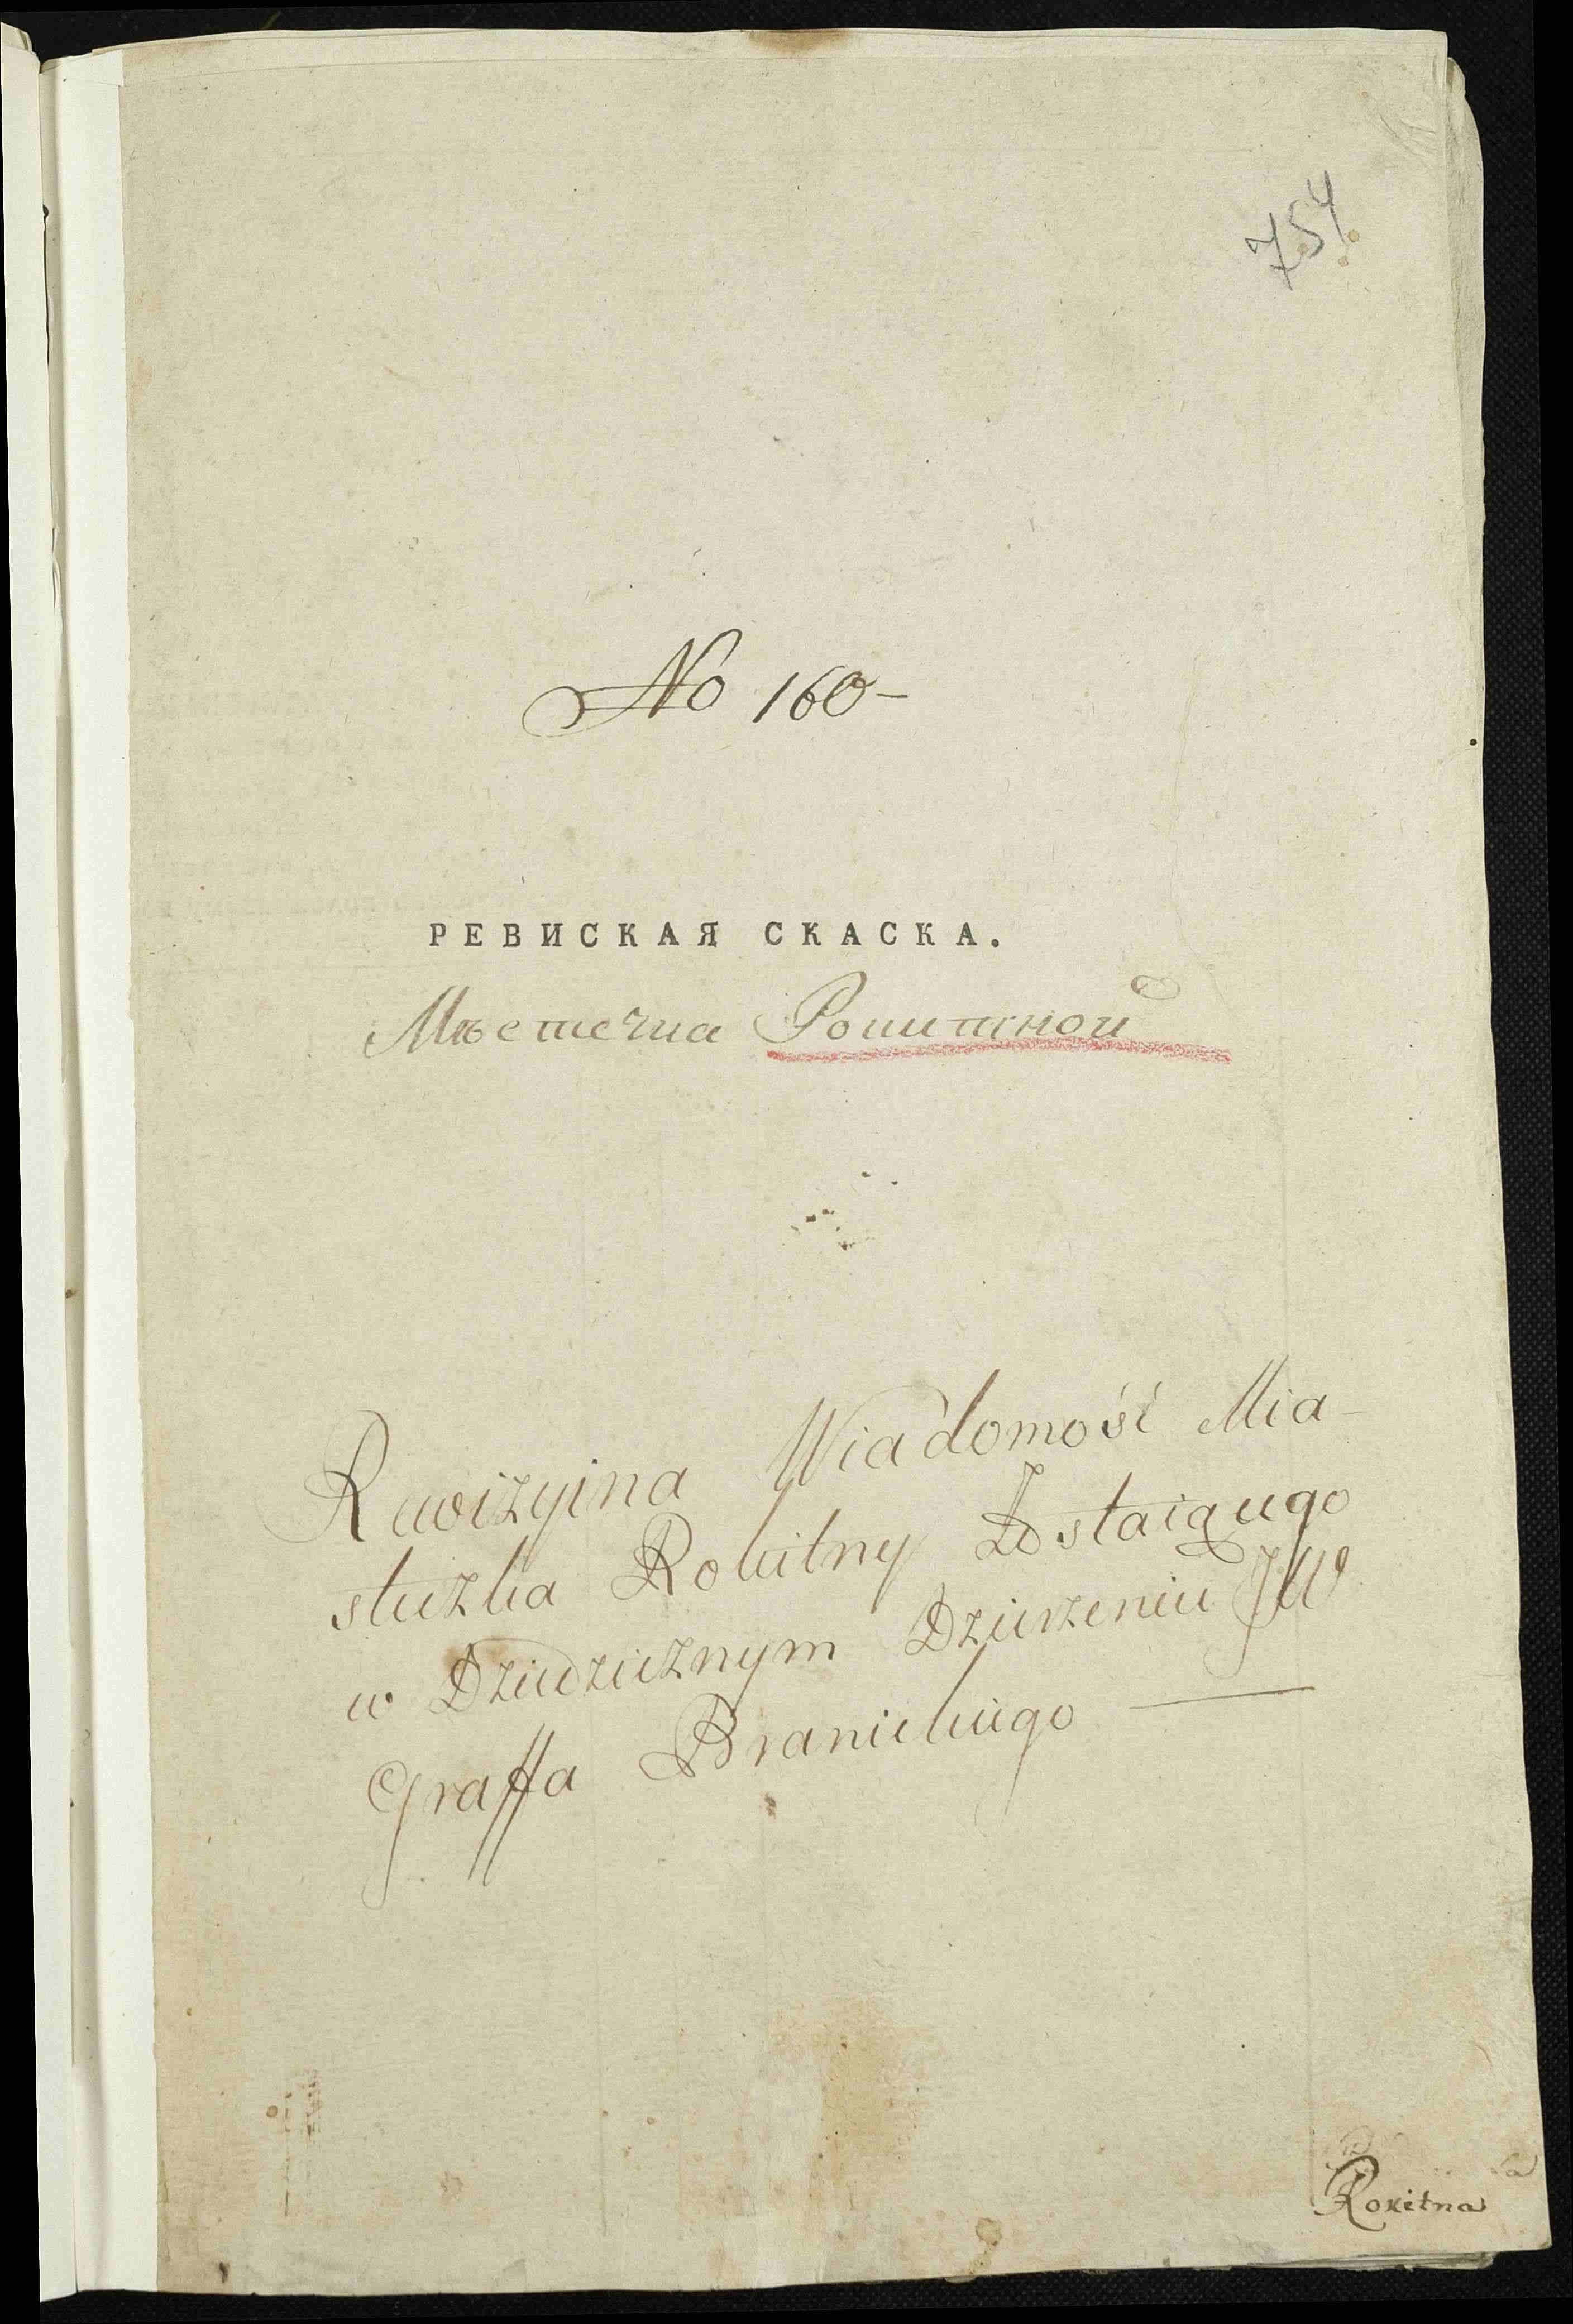 754
No 160-
РЕВИСКАЯ СКАСКА.
Мѣстечка Рокитной
Rewizyina Wiadomość Mia-
steczka Rokitny Zostaiącego
w Dziedzicznym Dzierzeniu JW
Graffa Branickiego
Rokitna